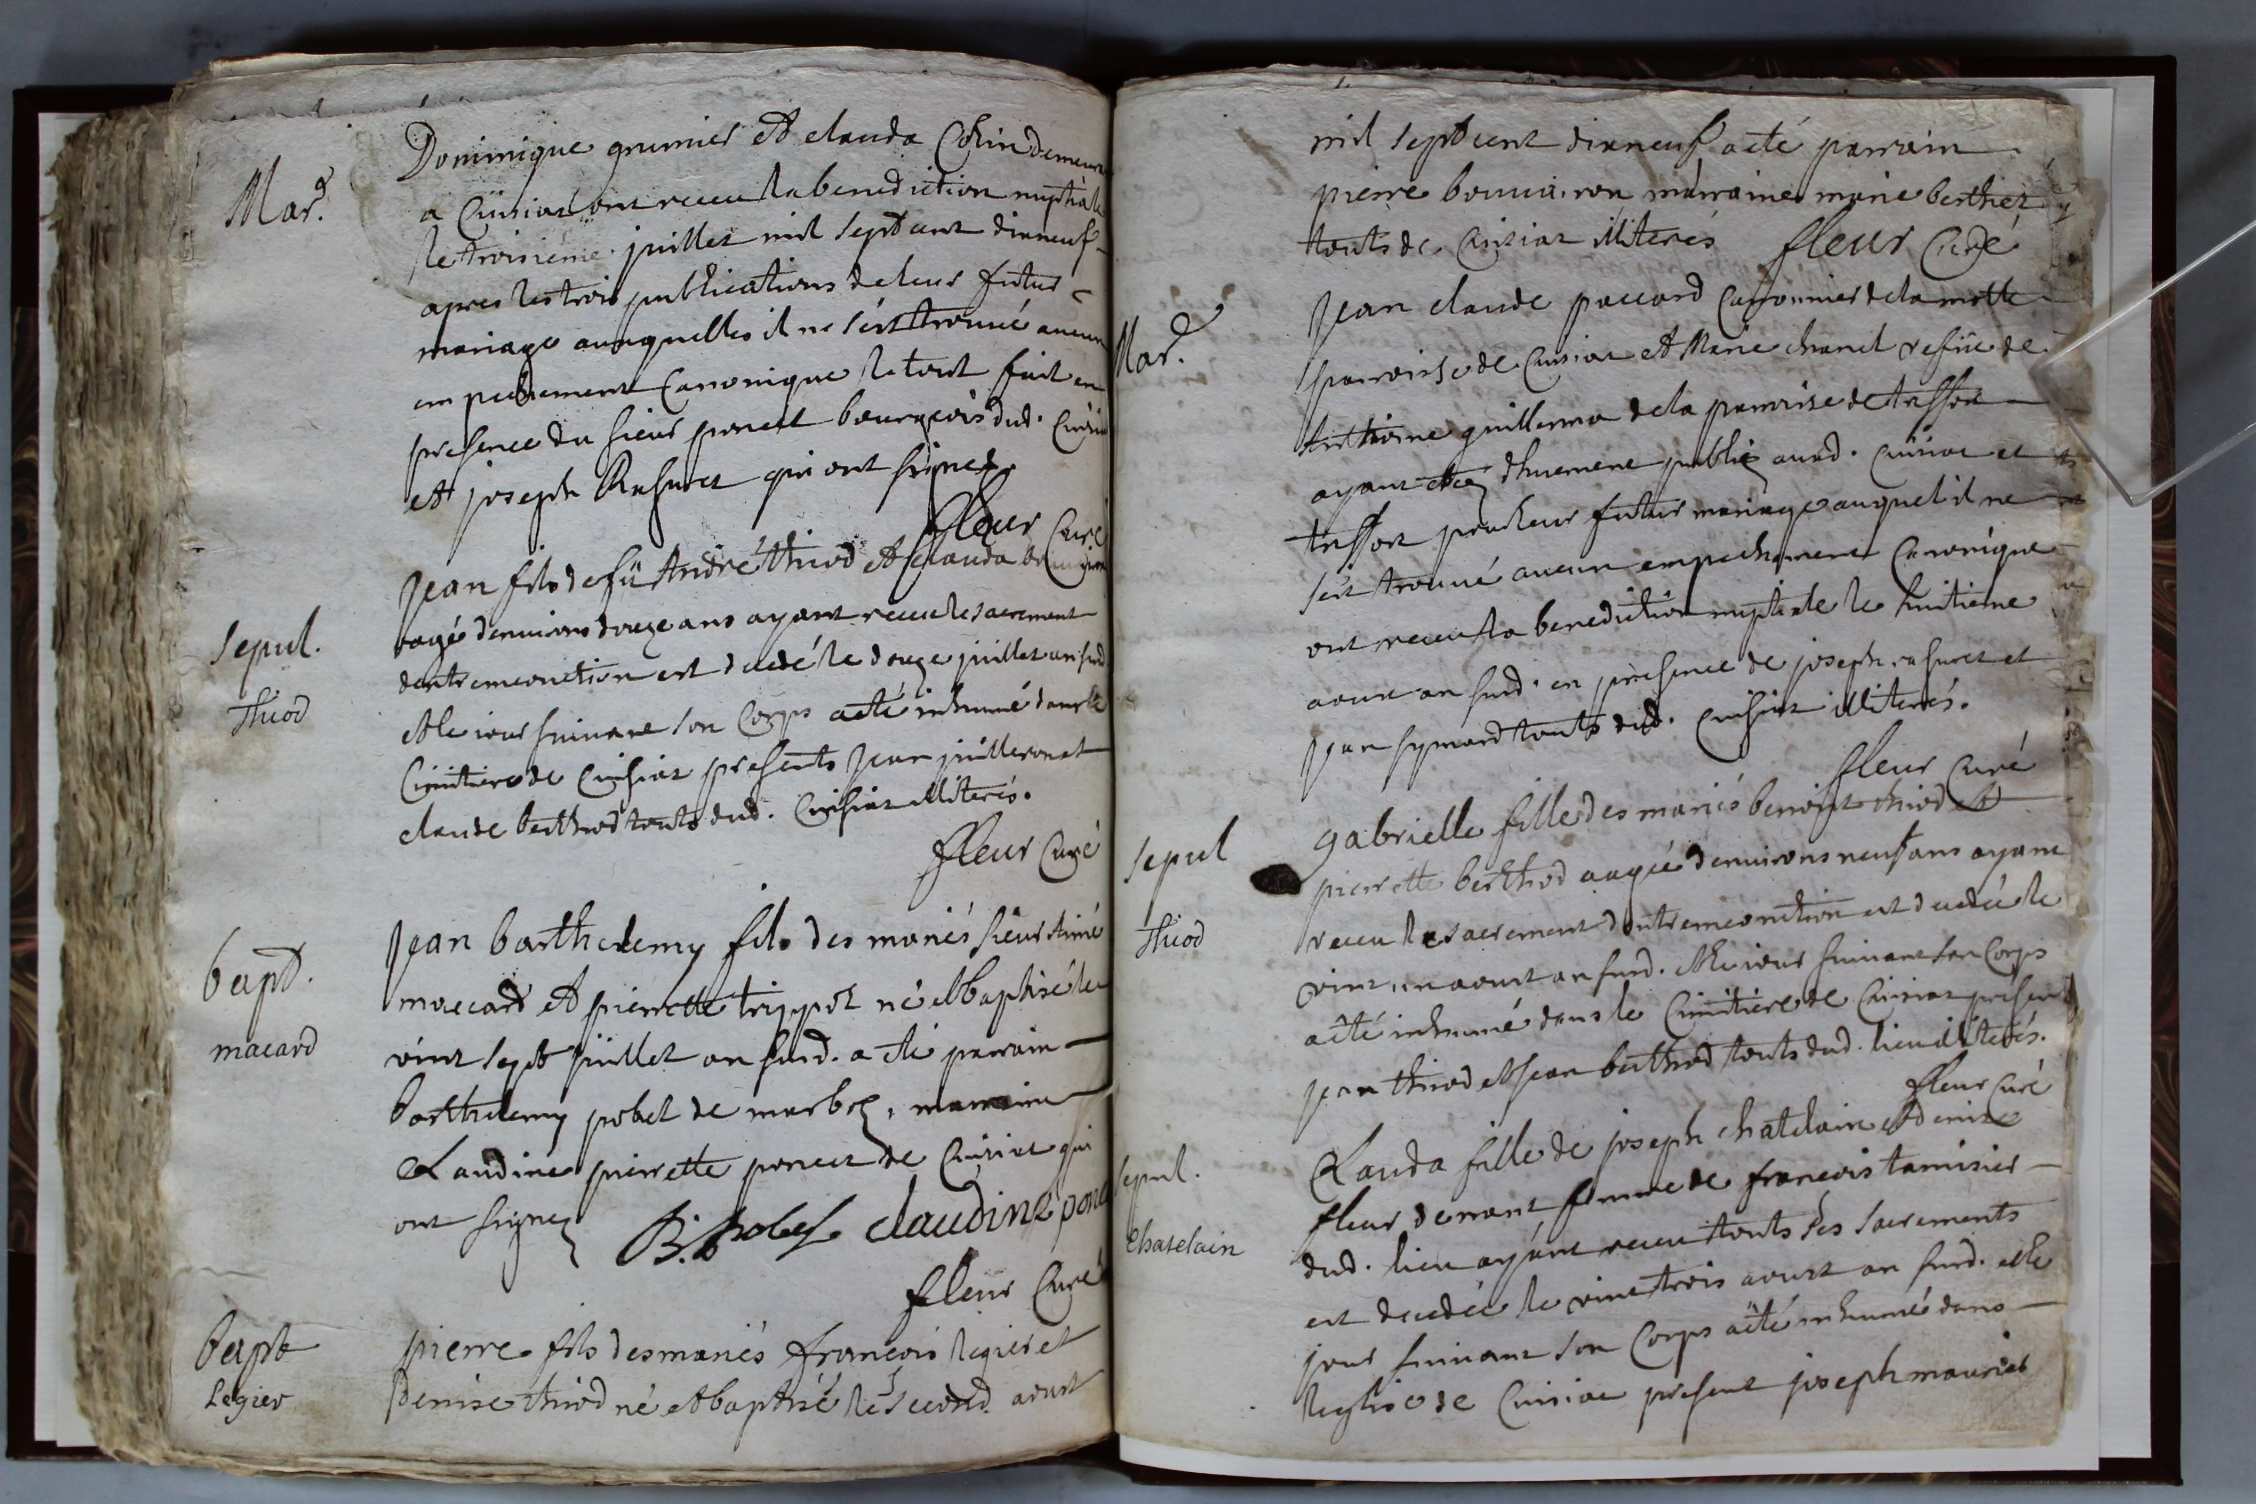 Mar.
Dominique grumier et clauda Colin demeur
a Cuisiat ont receu la benediction nuptiale
le troisieme juillet mil sept cent dixneuf
apres les trois publications de leur futur
mariage auxquelles il ne s'est trouvé aucun
empechement Canonique le tout fait en
presence du sieur poncet bourgeois dud. Cuisia
et joseph Rasurel qui ont signez
fleur Curé
Sepul.
Thiod
Jean fils de fû André thiod et clauda
aagé denvirons douze ans ayant receu le sacrement
dextremeonction est decedé le douze juillet an susd
et le iour suivant son Corps a eté inhumé dans le
Cimitiere de Cuisiat presents Jean juilleron et
claude berthod touts dud. Cuisiat illiterés.
fleur Curé
bapt.
macard
Jean barthelemy fils des mariés sieur Aimé
maccard et pierrette trippoz né et baptisé le
vint sept juillet an susd. a eté parrain
barthelemy pobel de marboz, marraine
Claudine pierrette poncet de Cuisiat qui
ont signez
B. pobel claudine ponc
fleur Curé
bapt
Legier
pierre fils des mariés francois legier et
Denise thiod né et baptisé le second aoust
mil sept cent dixneuf a eté parrain
pierre bouvairon marraine marie berthet
touts de Cuisiat illiterés fleur Curé
Mar.
Jean claude paccard Canonnier de la motte
parroisse de Cuisiat et Marie chanel vefue de
Anthoine guillermo de la parroisse de tresfort
ayant eté dhuement publiez aud. Cuisiat et
tresfort pour leur futur mariage auquel il ne
s'est trouvé aucun empechement Canonique
ont receu la benediction nuptiale le huitieme
aoust an susd. en presence de joseph rasurel et
jean symard touts dud. Cuisiat illiterés.
fleur Curé
Sepul
Thiod
gabrielle fille des mariés benoist thiod et
pierrette berthod aagée denvirons neuf ans ayant
receu le sacrement dextremeonction est decedée le
vint un aoust an susd. et le iour suivant son Corps
a eté inhumé dans le Cimitiere de Cuisiat present
jean thiod et jean berthod touts dud. lieu illiterés.
fleur Curé
Sepul.
Chatelain
Clauda fille de joseph chatelain et denize
fleur de nant femme de francois tamisier
dud. lieu ayant receu touts ses sacrements
est decedée le vint trois aoust an susd. et le
jour suivant son Corps a eté inhumé dans
leglise de Cuisiat present joseph mauriet